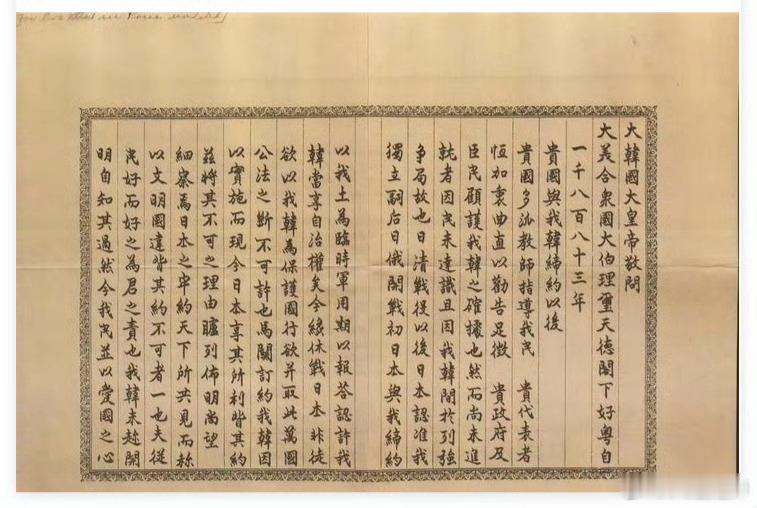 大韓國大皇帝敬問
大美合衆國大伯理璽天德閣下好粵自
一千八百八十三年
貴國與我韓締約以後
貴國多派教師指導我民 貴代表者
恒加衷曲直以勸告足徵 貴政府及
臣民顧護我韓之確據也然而尚未進
就者因民未達識且因我韓閒於列強
爭局故也日清戰役以後日本認准我
獨立嗣后日俄開戰初日本與我締約
以我土為臨時軍用期以報答認許我
韓當享自治權矣今纔休戰日本非徒
欲以我韓為保護國行欲并取此萬國
公法之斷不可許也馬關訂約我韓因
以實施而現今日本享其所利背其約
茲將其不可之理由臚列佈明尚望
細察焉日本之牢約天下所共見而称
以文明國違背其約不可者一也夫從
民好而好之為君之責也我韓未趁開
明自知其過然今我民並以愛國之心